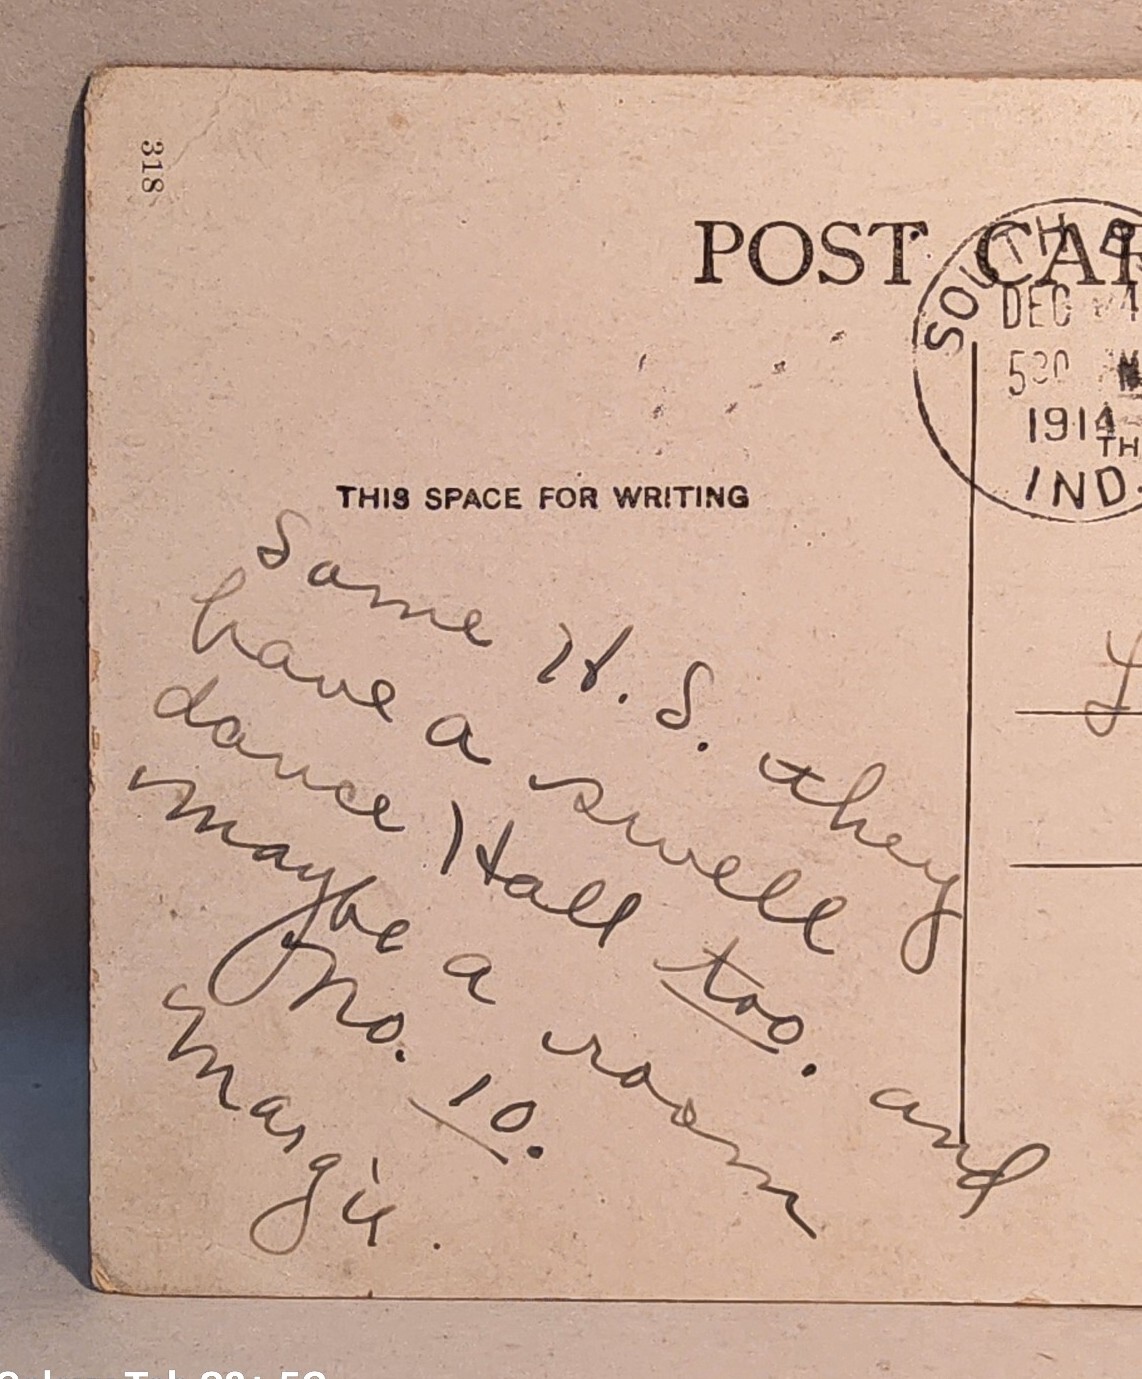 318
POST
SOUTH
DEC
530
1914
IND.
THIS SPACE FOR WRITING
Some H. S. they
have a swell
dance Hall too. and
maybe a room
No. 10.
Margie.